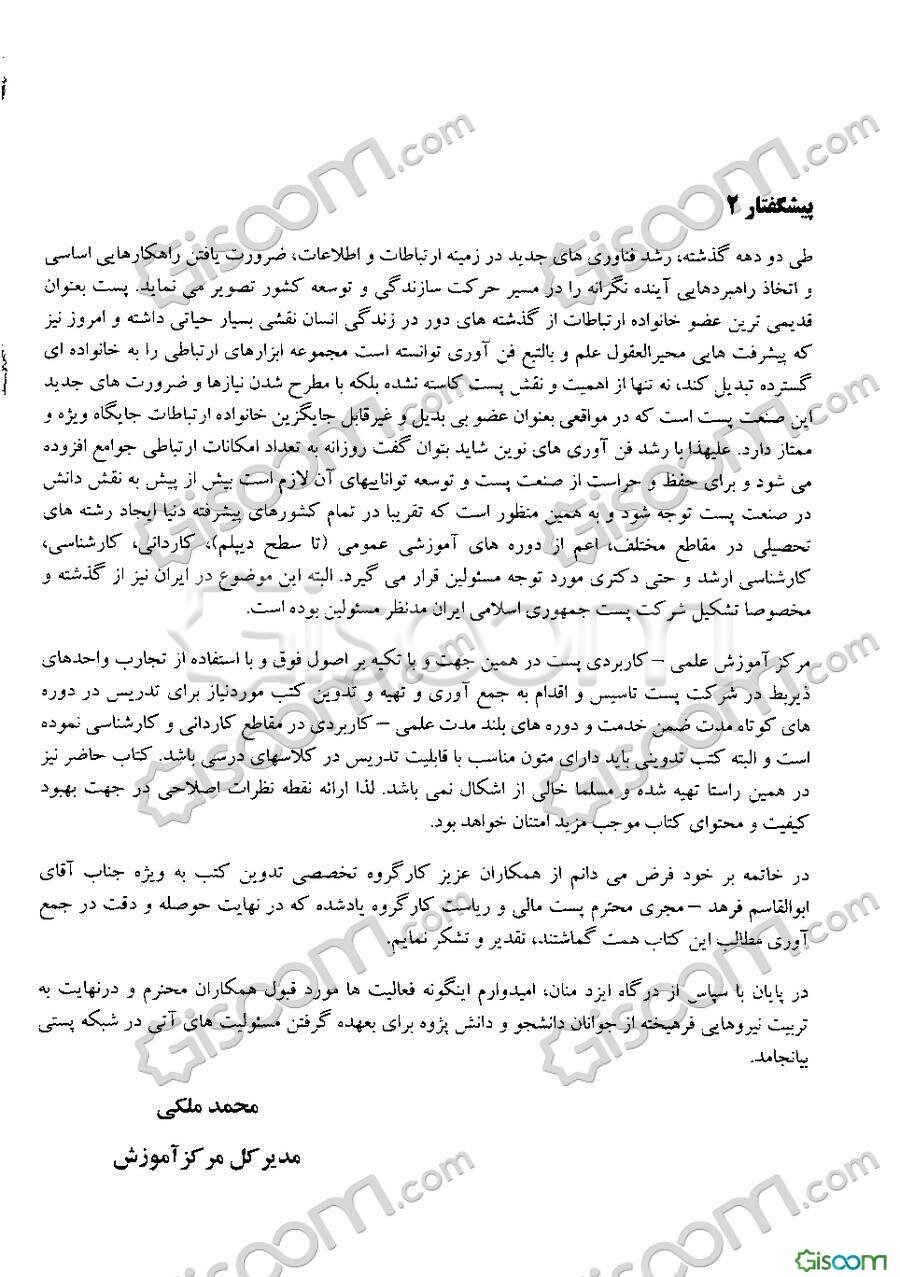 پیشگفتار ۲
طی دو دهه گذشته، رشد فناوری های جدید در زمینه ارتباطات و اطلاعات، ضرورت یافتن راهکارهایی اساسی
و اتخاذ راهبردهایی آینده نگرانه را در مسیر حرکت سازندگی و توسعه کشور تصویر می نماید. پست بعنوان
قدیمی ترین عضو خانواده ارتباطات از گذشته های دور در زندگی انسان نقشی بسیار حیاتی داشته و امروز نیز
که پیشرفت هایی محیرالعقول علم و بالتبع فن آوری توانسته است مجموعه ابزارهای ارتباطی را به خانواده ای
گسترده تبدیل کند، نه تنها از اهمیت و نقش پست کاسته نشده بلکه با مطرح شدن نیازها و ضرورت های جدید
این صنعت پست است که در مواقعی بعنوان عضو بی بدیل و غیرقابل جایگزین خانواده ارتباطات جایگاه ویژه و
ممتاز دارد. علیهذا با رشد فن آوری های نوین شاید بتوان گفت روزانه به تعداد امکانات ارتباطی جوامع افزوده
می شود و برای حفظ و حراست از صنعت پست و توسعه تواناییهای آن لازم است بیش از پیش به نقش دانش
در صنعت پست توجه شود و به همین منظور است که تقریبا در تمام کشورهای پیشرفته دنیا ایجاد رشته های
تحصیلی در مقاطع مختلف، اعم از دوره های آموزشی عمومی (تا سطح دیپلم)، کاردانی، کارشناسی،
کارشناسی ارشد و حتی دکتری مورد توجه مسئولین قرار می گیرد. البته این موضوع در ایران نیز از گذشته و
مخصوصا تشکیل شرکت پست جمهوری اسلامی ایران مدنظر مسئولین بوده است.
مرکز آموزش علمی – کاربردی پست در همین جهت و با تکیه بر اصول فوق و با استفاده از تجارب واحدهای
ذیربط در شرکت پست تاسیس و اقدام به جمع آوری و تهیه و تدوین کتب موردنیاز برای تدریس در دوره
های کوتاه مدت ضمن خدمت و دوره های بلند مدت علمی – کاربردی در مقاطع کاردانی و کارشناسی نموده
است و البته کتب تدوینی باید دارای متون مناسب با قابلیت تدریس در کلاسهای درسی باشد. کتاب حاضر نیز
در همین راستا تهیه شده و مسلما خالی از اشکال نمی باشد. لذا ارائه نقطه نظرات اصلاحی در جهت بهبود
کیفیت و محتوای کتاب موجب مزید امتنان خواهد بود.
در خاتمه بر خود فرض می دانم از همکاران عزیز کارگروه تخصصی تدوین کتب به ویژه جناب آقای
ابوالقاسم فرهد – مجری محترم پست مالی و ریاست کارگروه یادشده که در نهایت حوصله و دقت در جمع
آوری مطالب این کتاب همت گماشتند، تقدیر و تشکر نمایم.
در پایان با سپاس از درگاه ایزد منان، امیدوارم اینگونه فعالیت ها مورد قبول همکاران محترم و درنهایت به
تربیت نیروهایی فرهیخته از جوانان دانشجو و دانش پژوه برای بعهده گرفتن مسئولیت های آتی در شبکه پستی
بیانجامد.
محمد ملکی
مدیرکل مرکزآموزش
Gisoom.com
Gisoom